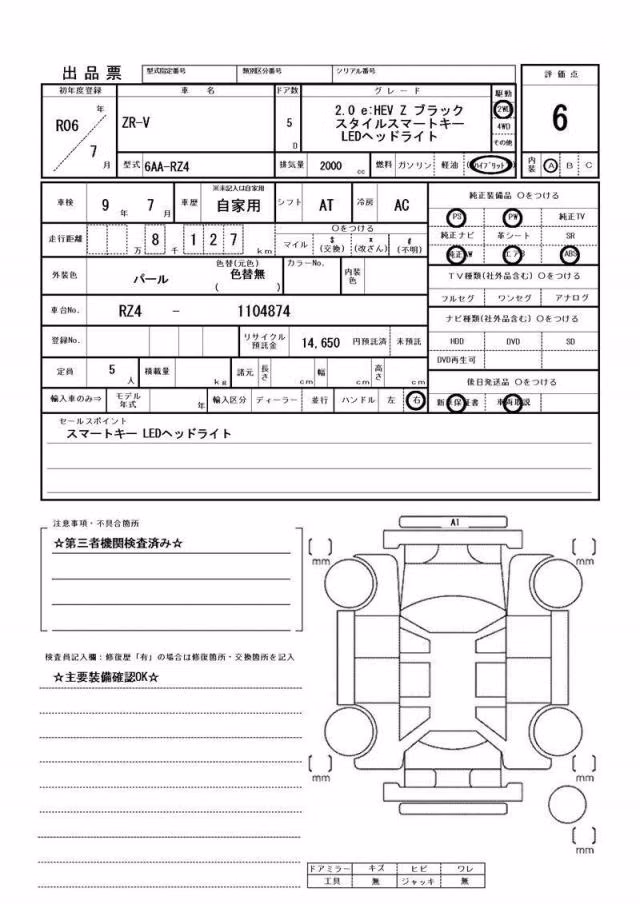 出品票 型式指定番号 類別区分番号 シリアル番号 評価点
初年度登録 車名 ドア数 グレード 駆動
R06 年 7 月 ZR-V 5 D 2.0 e:HEV Z ブラック 2WD 6
スタイルスマートキー 4WD
LEDヘッドライト その他
型式 6AA-RZ4 排気量 2000 cc 燃料 ガソリン 軽油 (ハイブリット) 内装 A B C
車検 9 年 7 月 車歴 ※未記入は自家用 自家用 シフト AT 冷房 AC 純正装備品 〇をつける
PS PW 純正TV
走行距離 万 8 千 1 2 7 km 〇をつける マイル $ (交換) x (改ざん) # (不明) 純正ナビ 革シート SR
純正AW エアB ABS
外装色 パール 色替(元色) 色替無 ( ) カラーNo. 内装色 TV種類(社外品含む) 〇をつける
フルセグ ワンセグ アナログ
車台No. RZ4 - 1104874 ナビ種類(社外品含む) 〇をつける
登録No. リサイクル預託金 14,650 円預託済 未預託 HDD DVD SD
DVD再生可
定員 5 人 積載量 kg 諸元 長さ cm 幅 cm 高さ cm 後日発送品 〇をつける
輸入車のみ⇒ モデル年式 年 輸入区分 ディーラー 並行 ハンドル 左 右 新車保証書 車両取説
セールスポイント
スマートキー LEDヘッドライト
注意事項・不具合箇所
☆第三者機関検査済み☆
A1
mm mm
検査員記入欄:修復歴「有」の場合は修復箇所・交換箇所を記入
☆主要装備確認OK☆
mm mm
mm
ドアミラー キズ ヒビ ワレ
工具 無 ジャッキ 無